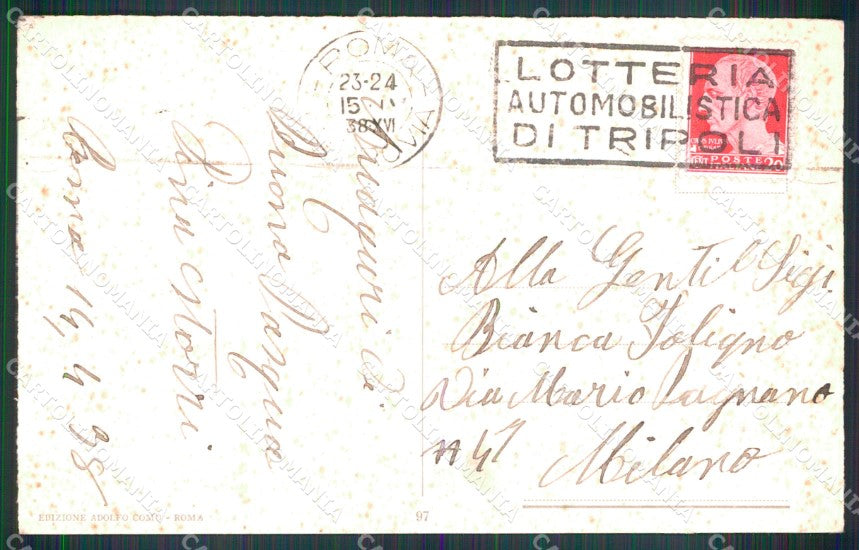 ROMA
23-24
15 IV
38 XVI
LOTTERIA
AUTOMOBILISTICA
DI TRIPOLI
POSTE
Auguri di
Buona Pasqua
Roma 14, 4 38
Alla Gentil Sigi.
Bianca Foligno
Via Mario Pagnano
n 47
Milano
EDIZIONE ADOLFO COMO - ROMA
97
CARTOLINOMANIA